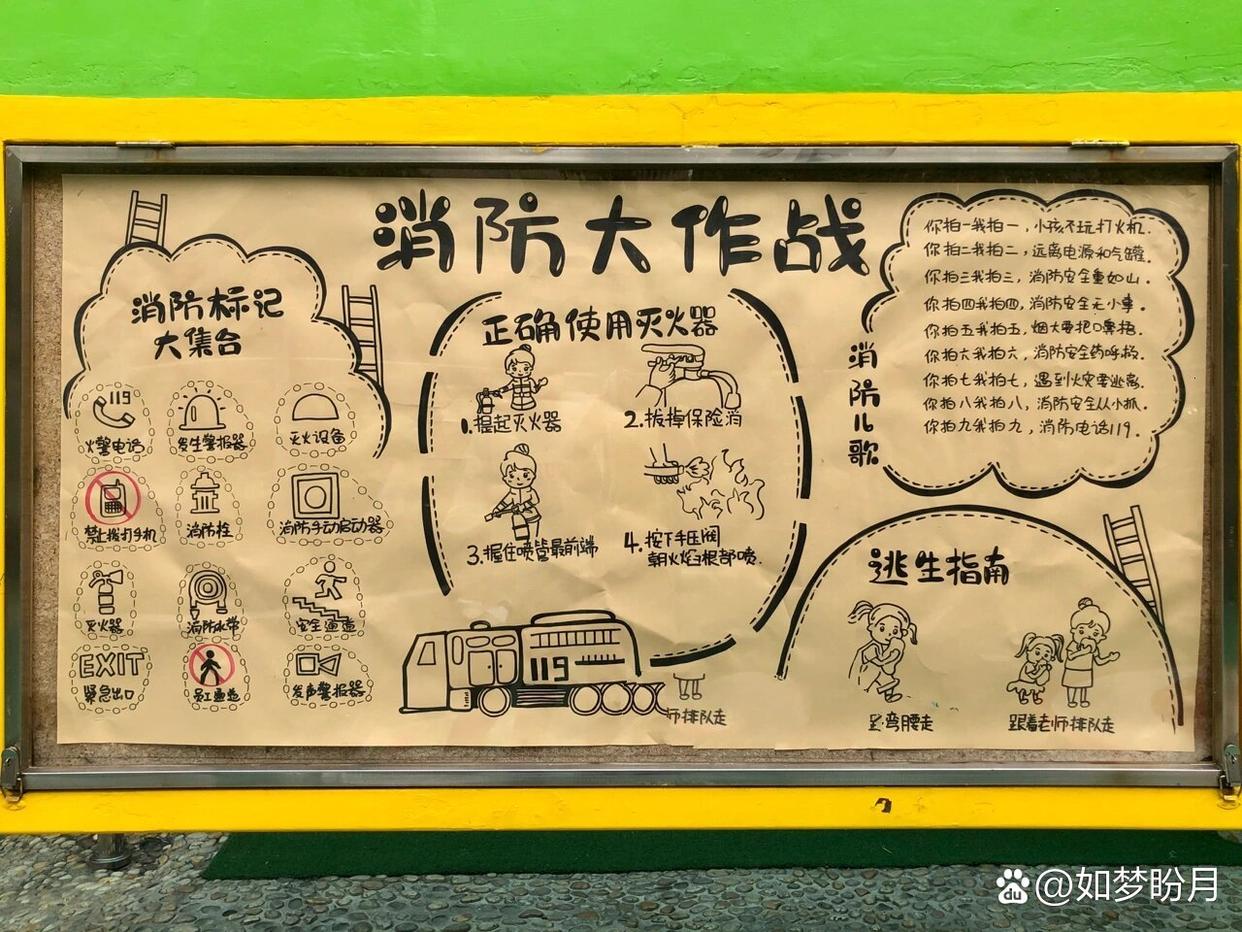 消防大作战
消防标记
大集合
119
火警电话
发生警报器
灭火设备
禁止拨打手机
消防栓
消防手动启动器
灭火器
消防水带
安全通道
EXIT
紧急出口
员工通道
发声警报器
正确使用灭火器
1.提起灭火器
2.拔掉保险消
3.握住喷管最前端
4.按下手压阀
朝火焰根部喷.
119
师排队走
消防儿歌
你拍一我拍一,小孩不玩打火机.
你拍二我拍二,远离电源和气罐.
你拍三我拍三,消防安全重如山.
你拍四我拍四,消防安全无小事.
你拍五我拍五,烟大要把口鼻捂.
你拍六我拍六,消防安全
你拍七我拍七,遇到火灾要逃离.
你拍八我拍八,消防安全从小抓.
你拍九我拍九,消防电话119.
逃生指南
弯腰走
跟着老师排队走
du @如梦盼月